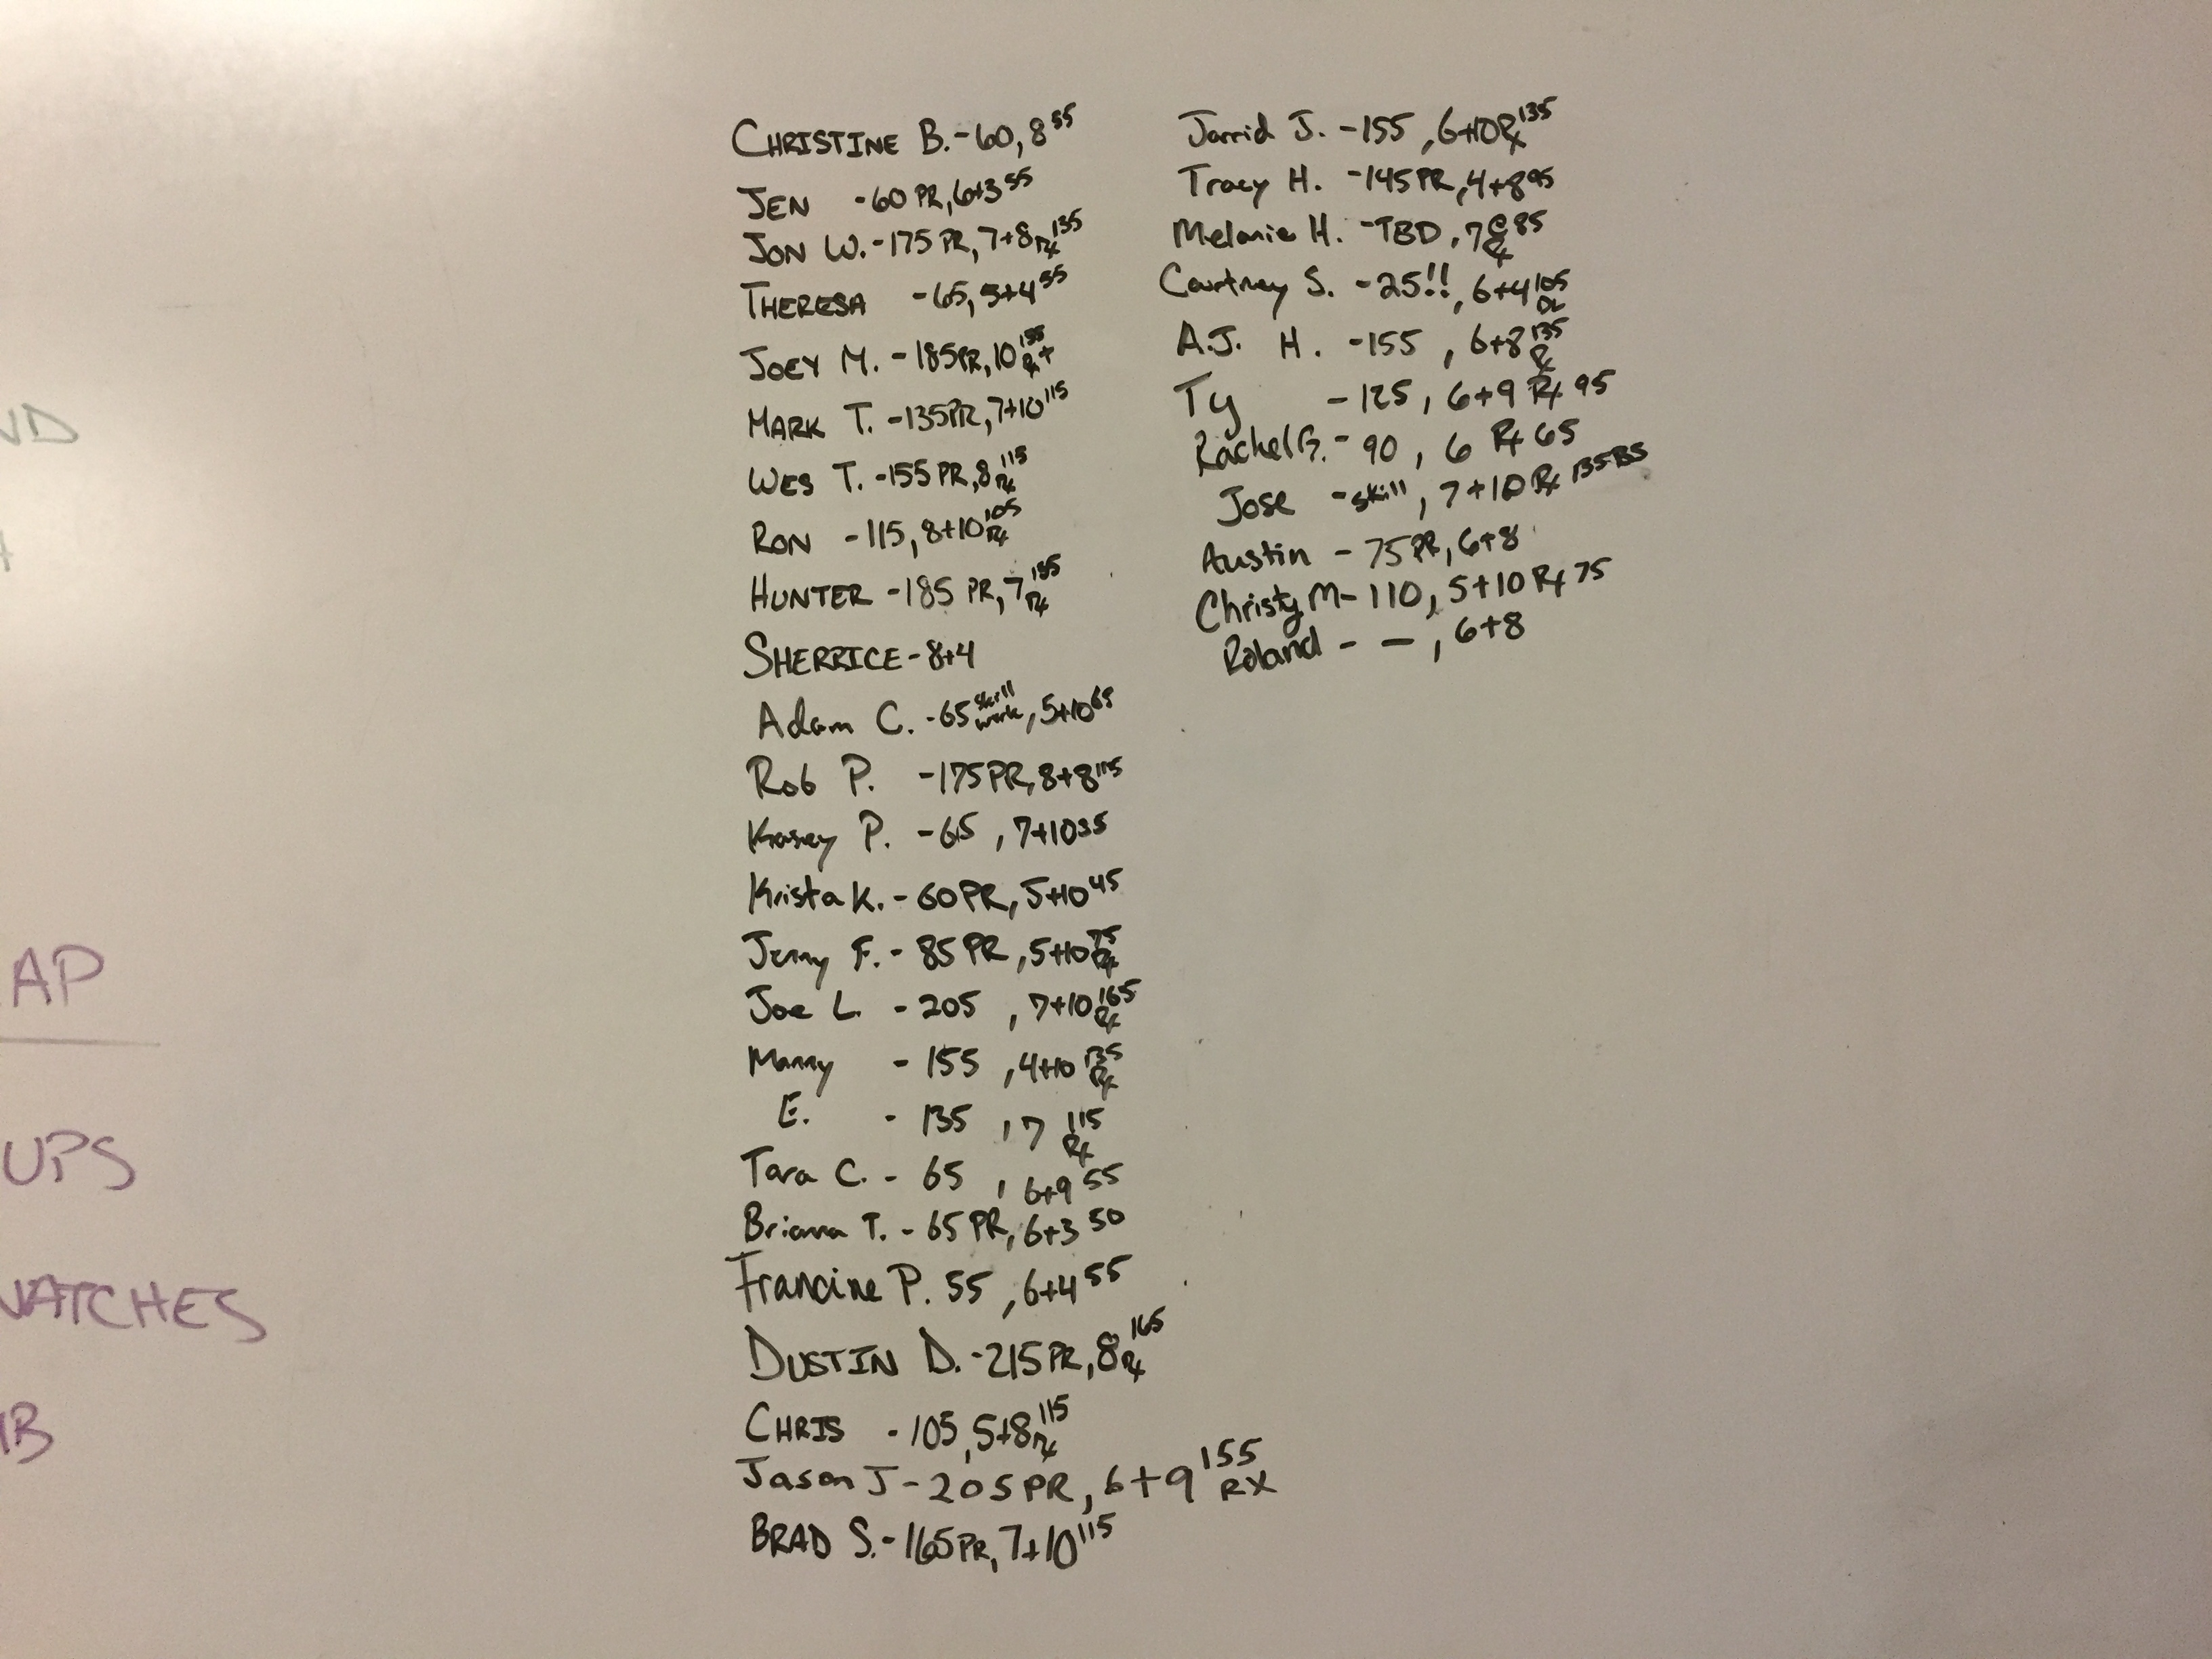 ND
AP
UPS
NATCHES
CHRISTINE B. - 60, 8 55
JEN - 60 PR, 6+3 55
JON W. - 175 PR, 7+8 Rx 135
THERESA - 65, 5+4 55
JOEY M. - 185 PR, 10 Rx+
MARK T. - 135 PR, 7+10 115
WES T. - 155 PR, 8 Rx 115
RON - 115, 8+10 Rx 105
HUNTER - 185 PR, 7 Rx
SHERRICE - 8+4
Adam C. - 65 skill work, 5+10 65
Rob P. - 175 PR, 8+8 115
Kasey P. - 65, 7+10 35
Krista K. - 60 PR, 5+10 45
Jenny F. - 85 PR, 5+10 Rx 75
Joe L. - 205, 7+10 Rx 165
Manny - 155, 4+10 Rx 135
E. - 135, 7 Rx 115
Tara C. - 65, 6+9 55
Briana T. - 65 PR, 6+3 50
Francine P. 55, 6+4 55
DUSTIN D. - 215 PR, 8 Rx 165
CHRIS - 105, 5+8 Rx 115
Jason J - 205 PR, 6+9 155 RX
BRAD S. - 165 PR, 7+10 115
Jarrid J. - 155, 6+10 Rx 135
Tracy H. - 145 PR, 4+8 95
Melanie H. - TBD, 7 @ 85 Rx
Courtney S. - 25!!, 6+4 105
A.J. H. - 155, 6+8 Rx 135
Ty - 125, 6+9 Rx 95
Rachel - 90, 6 Rx 65
Jose - skill, 7+10 Rx 135 BS
Austin - 75 PR, 6+8
Christy M - 110, 5+10 Rx 75
Roland - —, 6+8